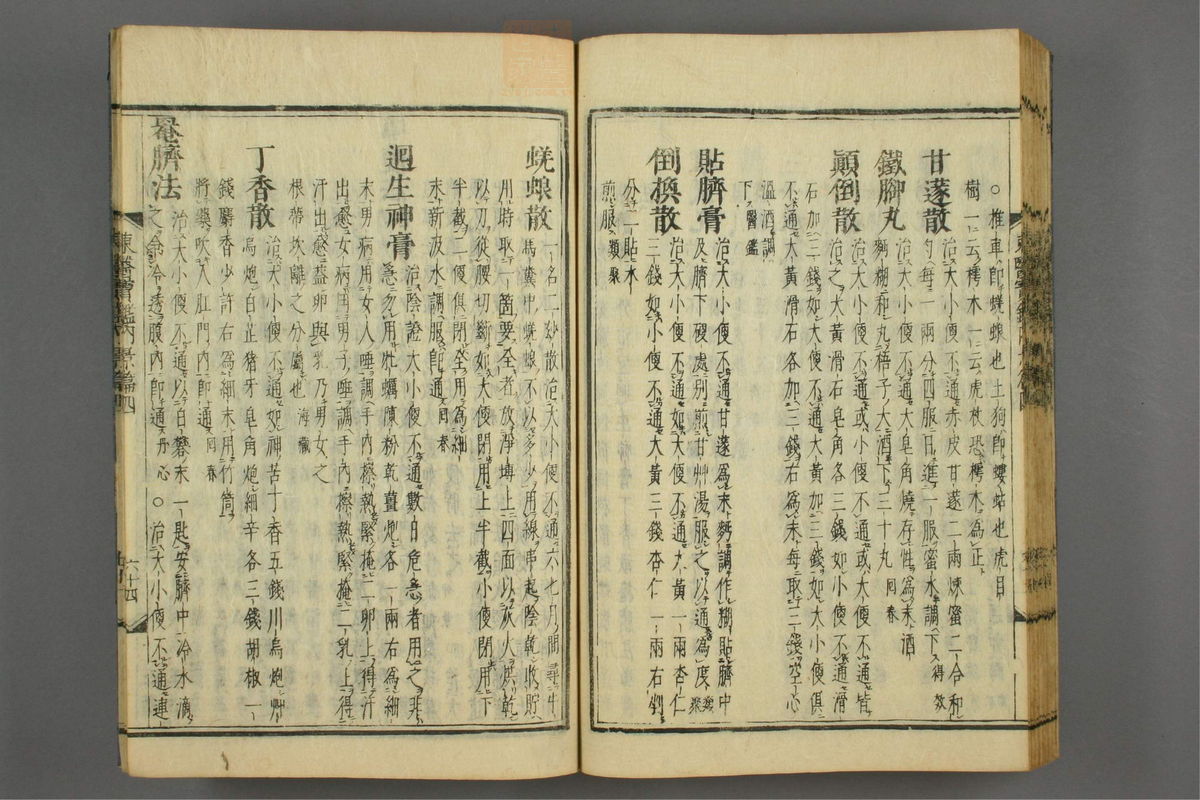 ○推車即蜣蜋也土狗即螻蛄也虎目
樹一云樗木一云虎杖恐樗木為正
甘遂散
治大小便不通赤皮甘遂二兩煉蜜二合和
匀每一兩分四服日進一服蜜水調下得效
鐵脚丸
治大小便不通大皂角燒存性為末酒
麪糊和丸梧子大酒下三十丸 囘春
顚倒散
治大小便不通或小便不通或大便不通皆
治之大黃滑石皂角各三錢如小便不通滑
石加三錢如大便不通大黃加三錢如大小便俱
不通大黃滑石各加三錢右為末每取三錢空心
溫酒調
下 醫鑑
貼臍膏
治大小便不通甘遂為末麪調作糊貼臍中
及臍下硬處別煎甘艸湯服之以通為度 類聚
倒換散
治大小便不通如大便不通大黃一兩杏仁
三錢如小便不通大黃三錢杏仁一兩右剉
分二貼水
煎服 類聚
蜣蜋散
一名二妙散治大小便不通六七月間尋牛
馬糞中蜣蜋不以多少用線串起陰乾收貯
用時取一箇要全者放淨塼上四面以灰火烘乾
以刀從腰切斷如大便閉用上半截小便閉用下
半截二便俱閉全用為細
末新汲水調服即通 囘春
迴生神膏
治陰證大小便不通數日危急者用之非
急勿用牡蠣陳粉乾薑炮各一兩右為細
末男病用女人唾調手內擦熱緊掩二卵上得汗
出愈女病用男子唾調手內擦熱緊掩二乳上得
汗出愈蓋卵與乳乃男女之
根蔕坎離之分屬也 海藏
丁香散
治大小便不通如神苦丁香五錢川烏炮艸
烏炮白芷猪牙皂角炮細辛各三錢胡椒一
錢麝香少許右為細末用竹筒
將藥吹入肛門內即通 囘春
罨臍法
治大小便不通以白礬末一匙安臍中冷水滴
之令冷透腹內即通 丹心 ○治大小便不通連
東醫寶鑑 內景篇四
六十四